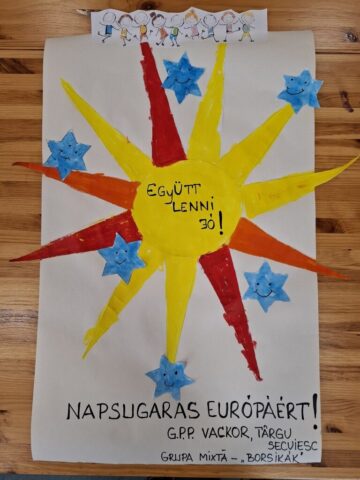 EGYÜTT
LENNI
JÓ!
NAPSUGARAS EURÓPÁÉRT!
G.P.P. VACKOR, TÂRGU
SECUIESC
GRUPA MIXTĂ - „BORSIKÁK"